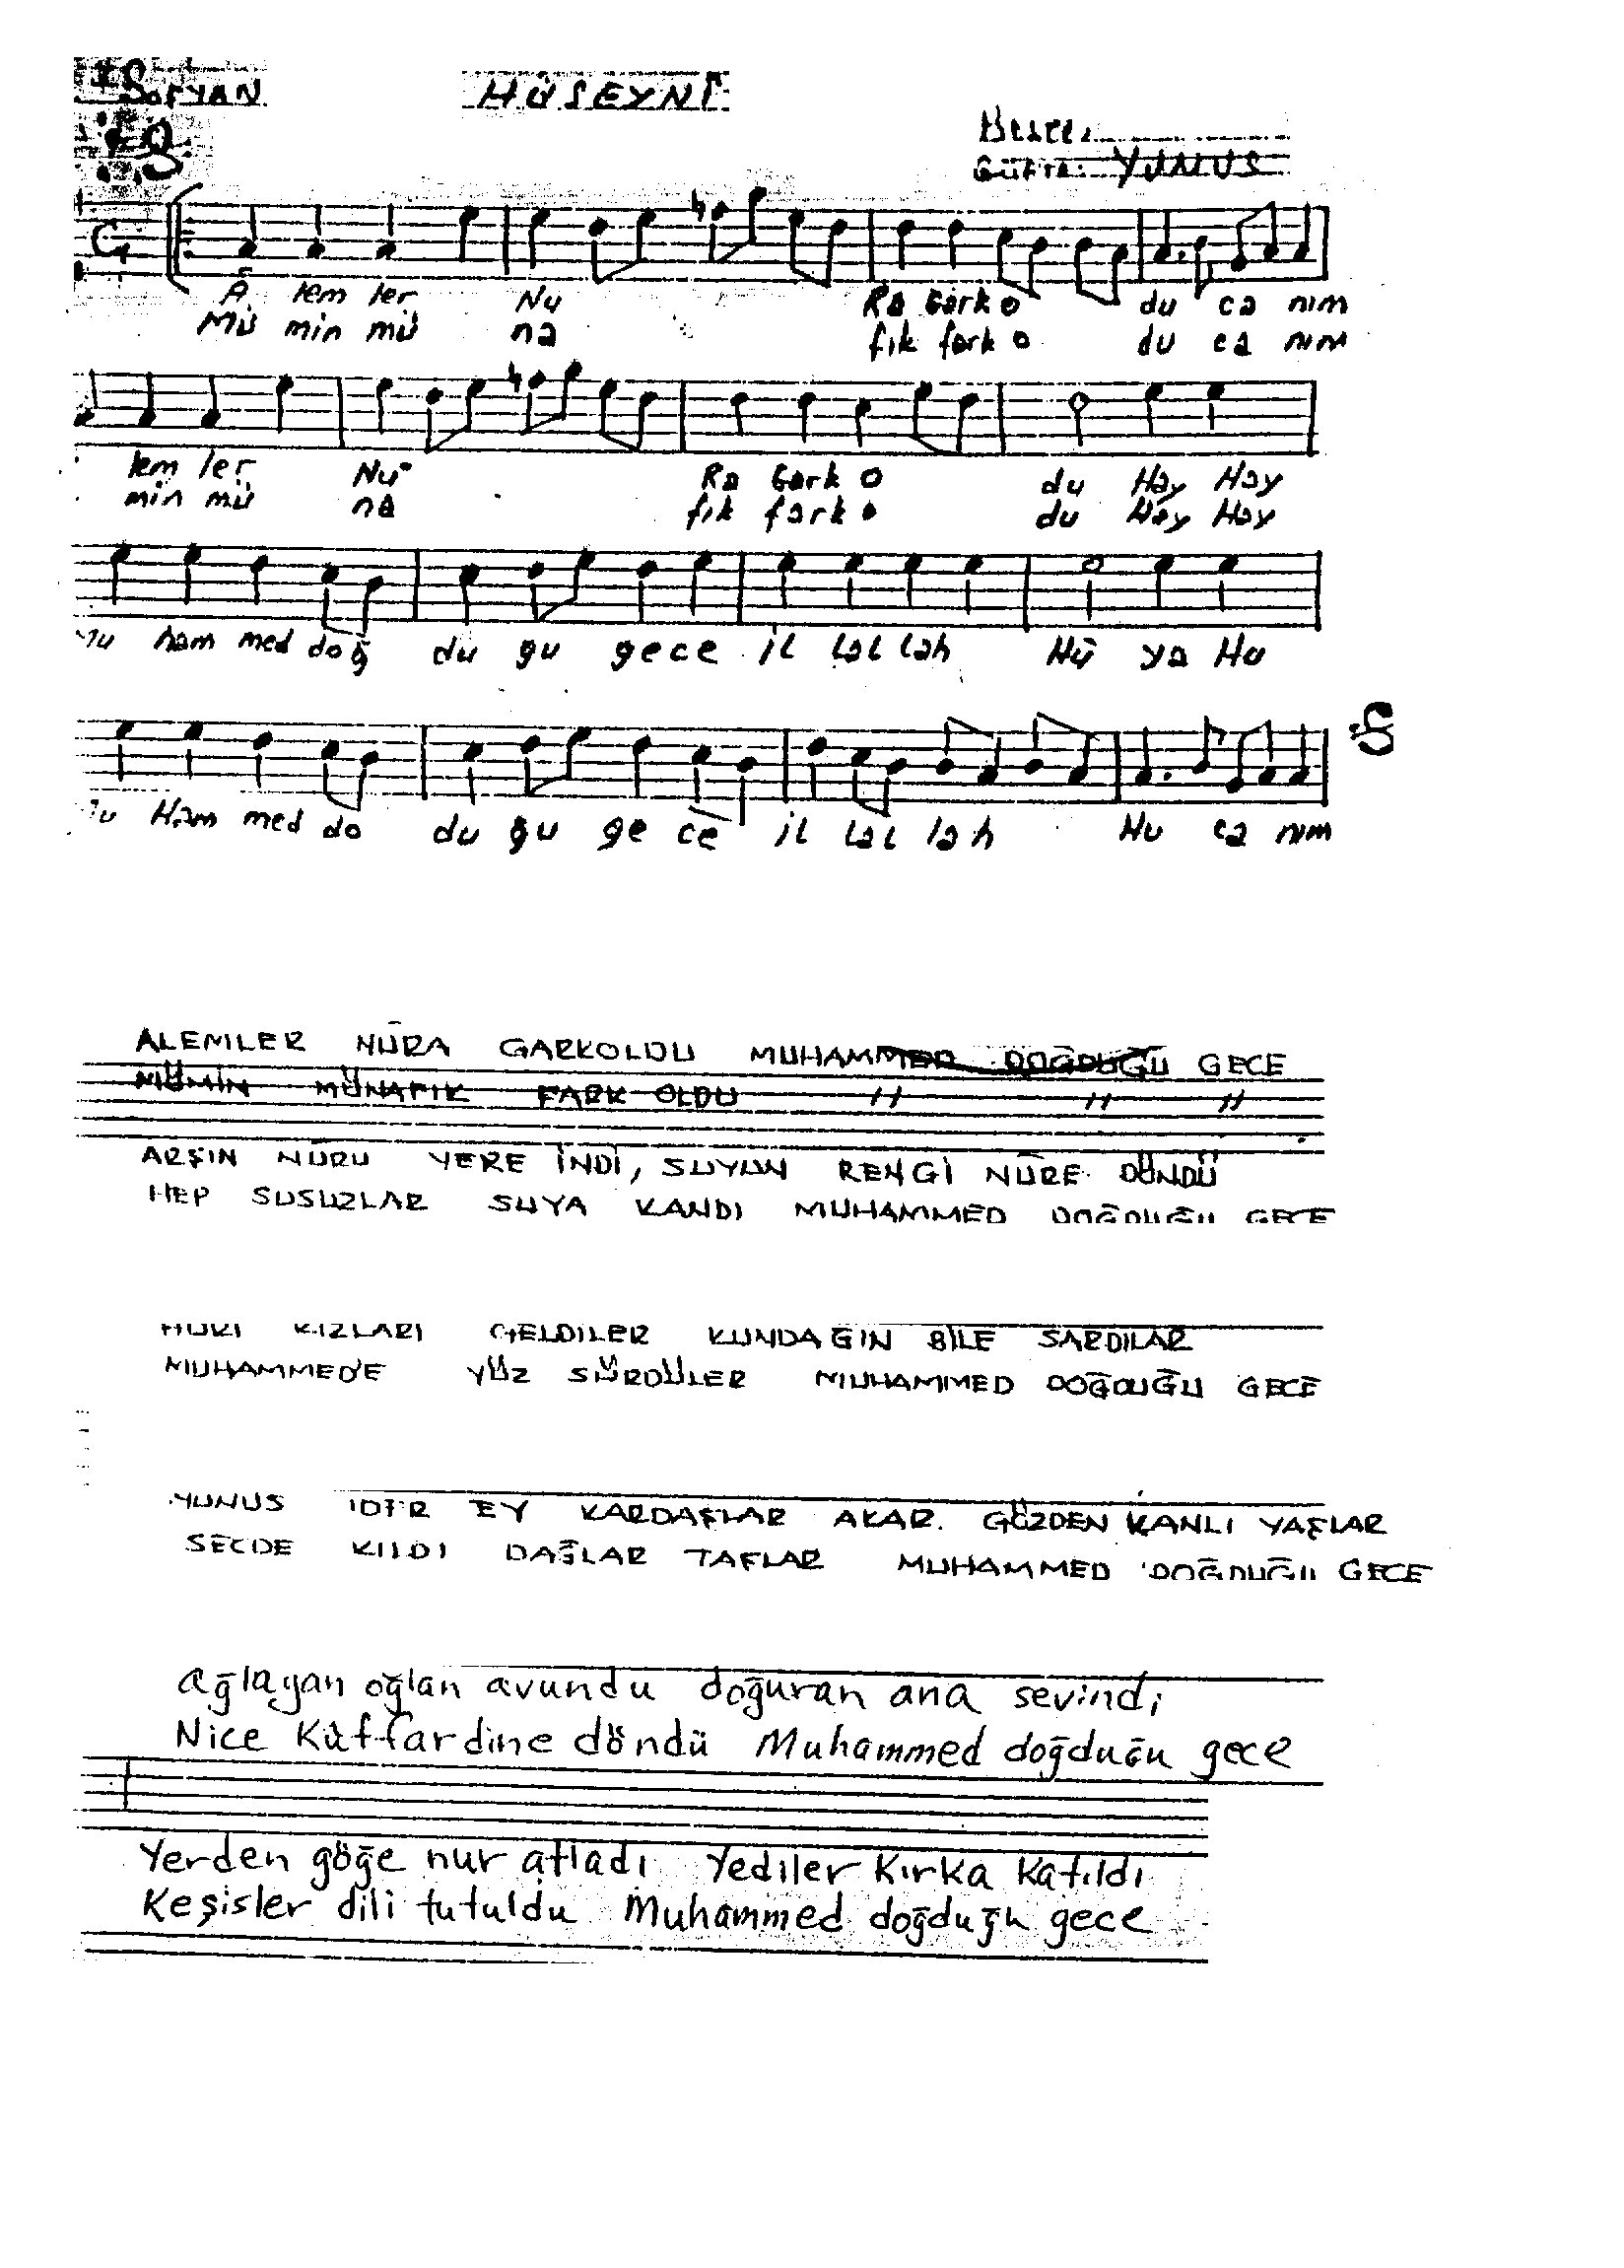 SOFYAN
HÜSEYNİ
Beste:
Güfte: YUNUS
Â lem ler Nu Ra Gark o du ca nım
Mü min mü na fık fark o du ca nım
lem ler Nu Ra Gark o du Hay Hay
min mü na fık fark o du Hay Hay
Mu ham med doğ du gu gece il lal lah Hû ya Hu
Ham med do du ğu ge ce il lal lah Hu ca nım
ALEMLER NÛRA GARKOLDU MUHAMMED DOĞDUĞU GECE
MÜMİN MÜNAFIK FARK OLDU " " "
ARŞIN NÛRU YERE İNDİ, SUYUN RENGİ NÛRE DÖNDÜ
HEP SUSUZLAR SUYA KANDI MUHAMMED DOĞDUĞU GECE
HURİ KIZLARI GELDİLER KUNDAĞIN BİLE SARDILAR
MUHAMMED'E YÜZ SÜRDÜLER MUHAMMED DOĞDUĞU GECE
YUNUS İDER EY KARDAŞLAR AKAR GÖZDEN KANLI YAŞLAR
SECDE KILDI DAĞLAR TAŞLAR MUHAMMED DOĞDUĞU GECE
Ağlayan oğlan avundu doğuran ana sevindi
Nice Küffar dine döndü Muhammed doğduğu gece
Yerden göğe nur atladı Yediler Kırka katıldı
Keşişler dili tutuldu Muhammed doğduğu gece